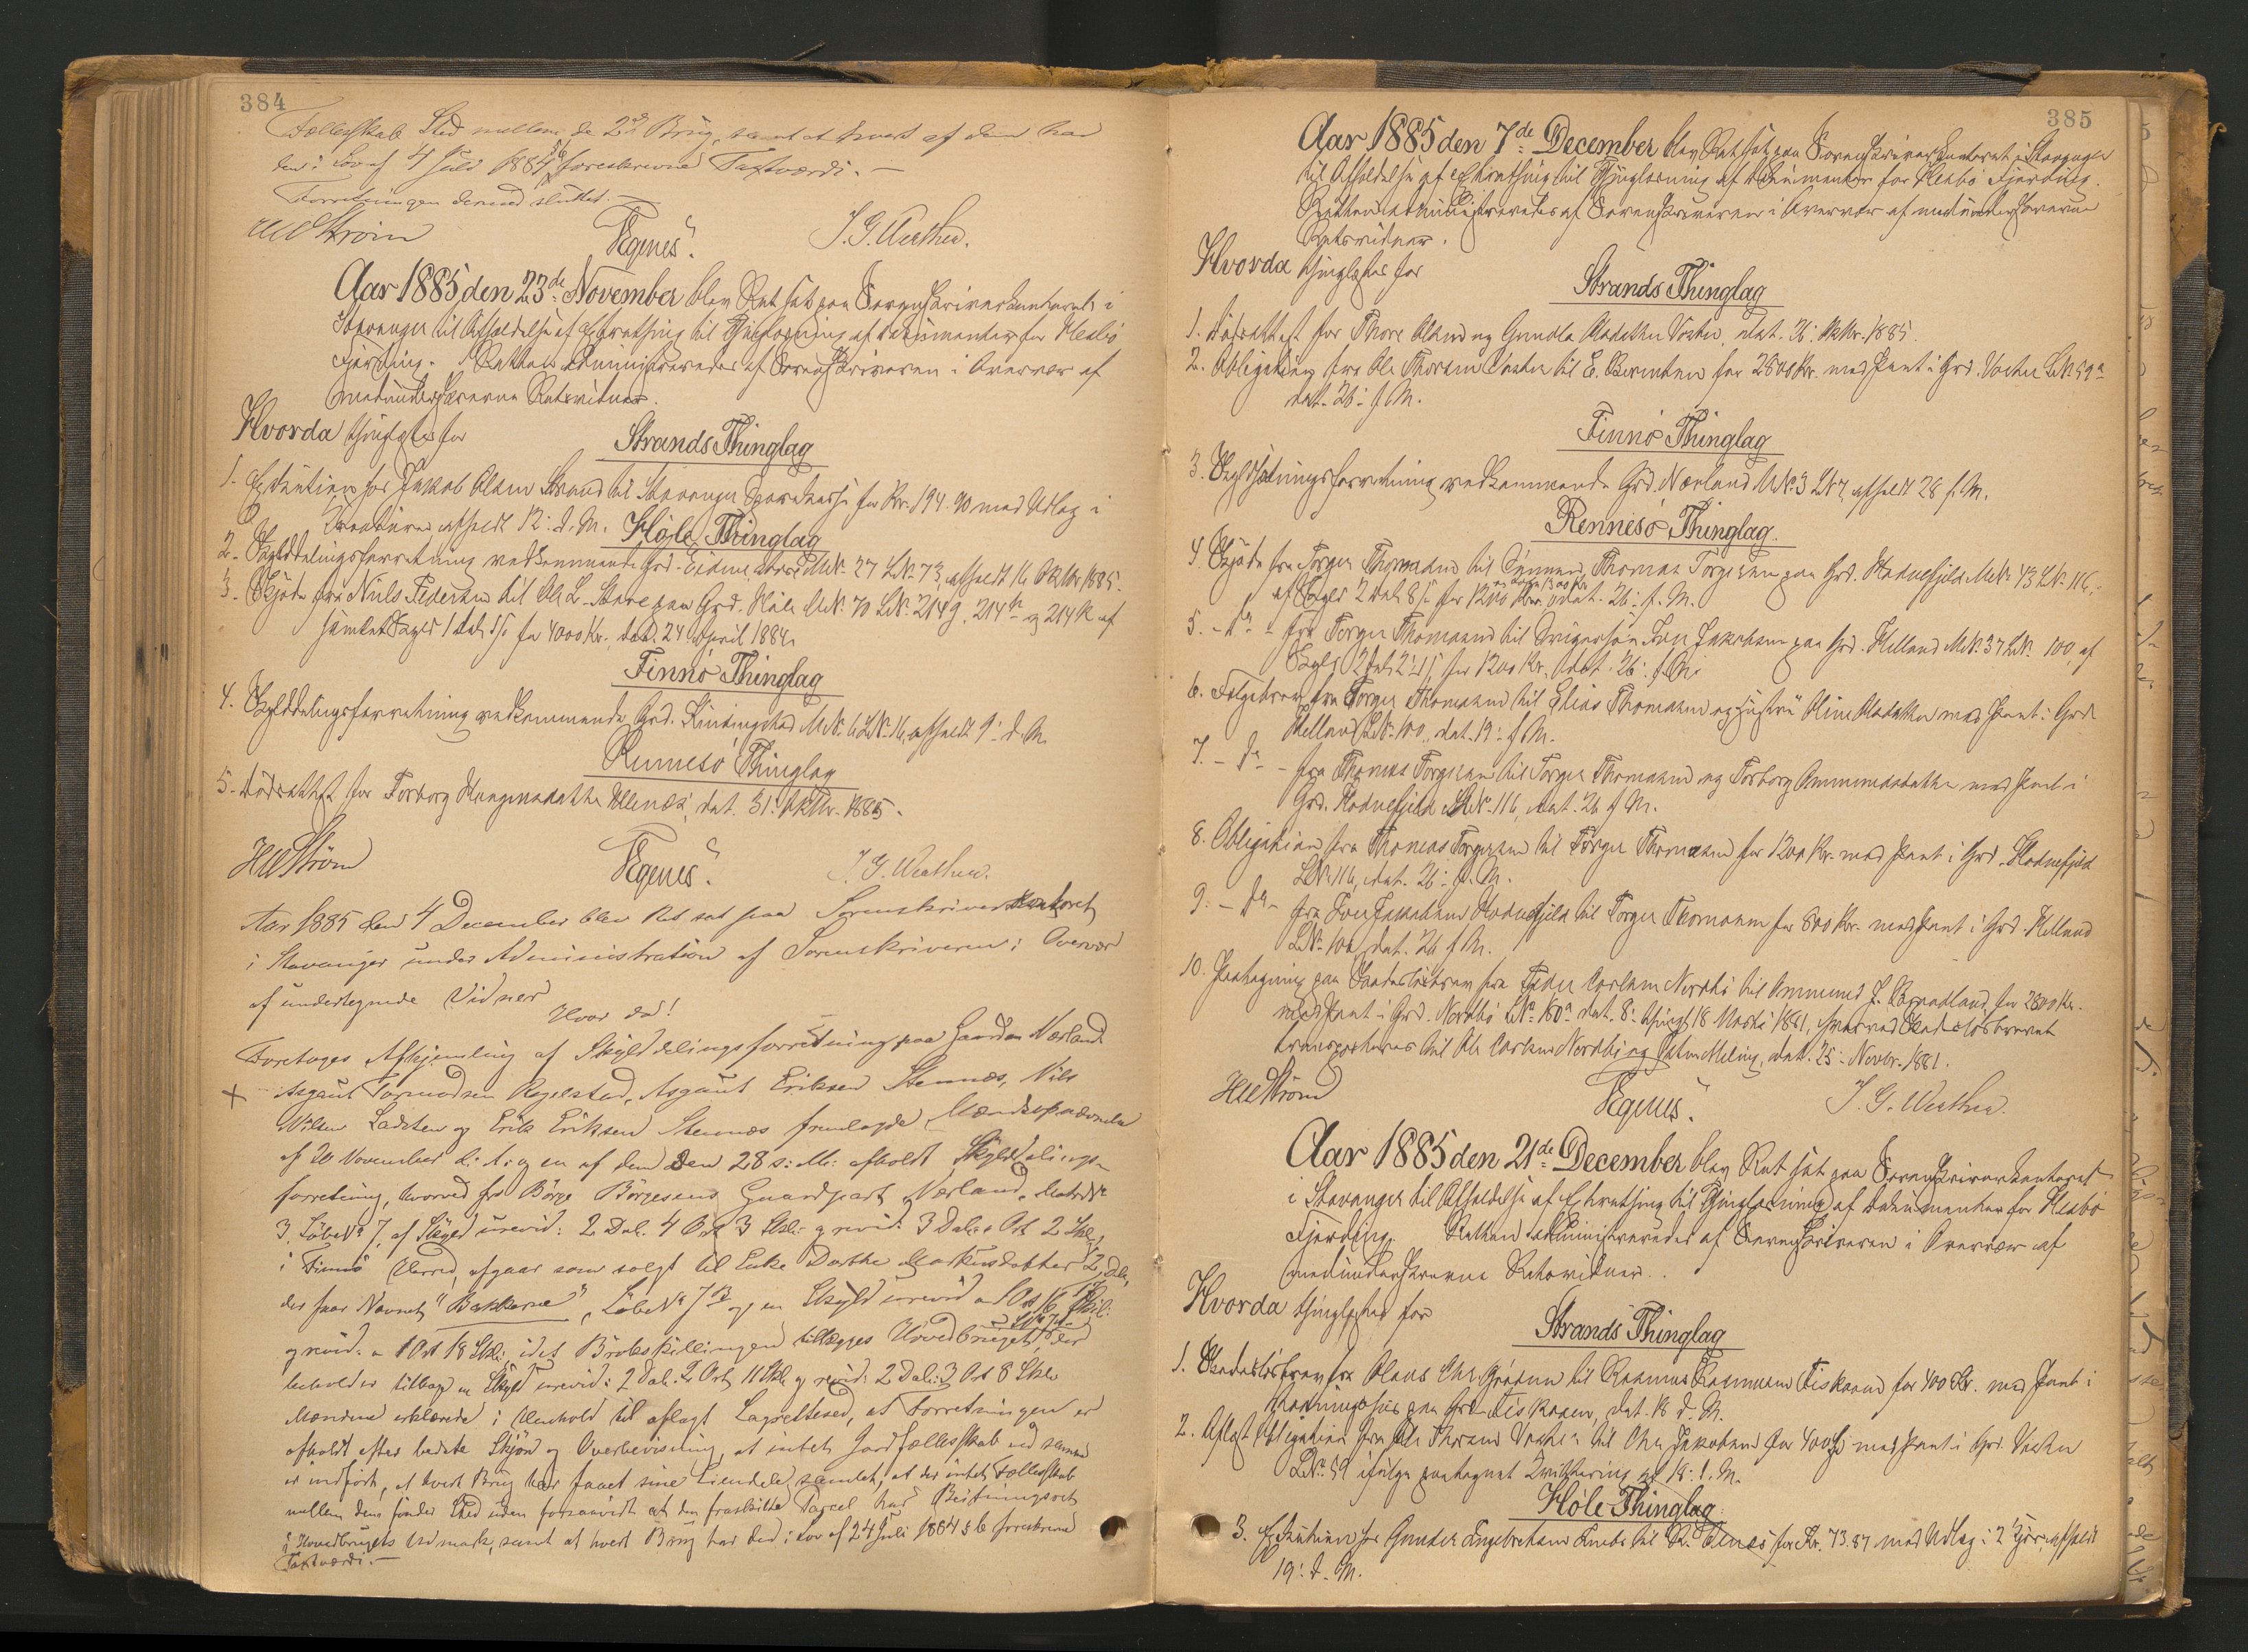 384
Fællesskab Sted mellem de 2de Brug, samt at hvert af dem har
den i Lov af 4 Juli 1884 § 6 foreskrevne Taxtværdi. —
Forretningen dermed sluttet. —
Strøm Egenes. J. G. Werther.
Aar 1885 den 23de November blev Ret sat paa Sorenskriverkontoret i
Stavanger til Afholdelse af Extrathing til Thinglæsning af Dokumenter for Hesbø
Fjerding. Retten administreredes af Sorenskriveren i Overvær af
medunderskrevne Retsvidner.
Hvorda thinglæstes for
Strands Thinglag
1. Exekution hos Jakob Olsen Strand til Stavanger Sparekasse for Kr. 194.90 med Udlæg i
Kreaturer afholdt 12. d. M.
Høle Thinglag
2. Skylddelingsforretning vedkommende Grd. Eidene MNo 27 LNo 73, afholdt 16 Oktbr. 1885.
3. Skjøde fra Niels Pedersen til Ole L. Stave paa Grd. Høle MNo 70 LNo 214g, 214h og 214k af
samlet Skyld 1 Dal. for 4000 Kr., dat. 24 April 1884.
Finnø Thinglag
4. Skylddelingsforretning vedkommende Grd. Kindingstad MNo 6 LNo 16, afholdt 9. d. M.
Rennesø Thinglag
5. Dødsattest for Torborg Haagensdatter dat. 31. Oktbr. 1885.
Strøm Egenes. J. G. Werther.
Aar 1885 den 4 December blev Ret sat paa Sorenskriverkontoret
i Stavanger under Administration af Sorenskriveren i Overvær
af undertegnede Vidner
Hvor da!
Foretoges Afhjemling af Skylddelingsforretning paa Gaarden Nærland
+ Asgaut Tormodsen Rygelstad, Asgaut Eriksen Stennæs, Nils
Nilsen Ladsten og Erik Eriksen Stennæs fremlagde Mændsopnævnelse
af 20 November d: A: og en af dem den 28 s: M: afholdt Skylddelings-
forretning, hvorved fra Børge Børgesens Gaardpart Nærland, MatrNo
3. LøbeNo 7, af Skyld urevid: 2 Dal. 4 Ort 3 Skl: og revid: 3 Dal: Ort 2 Skl,
i Finnø Herred, afgaar som solgt til Enke Dorthe Markusdatter
der faar Navnet "Bakkene", LøbeNo 7 B og en Skyld urevid: Ort 16 Skil:
og revid: 1 Ort 18 Skl:, idet Brøkskillingen tillægges Hovedbruget, der
beholder tilbage en Skyld urevid: 2 Dal: 2 Ort 11 Skl: og revid: 2 Dal: 3 Ort 8 Skl:
Mændene erklærede i Henhold til aflagt Lagrettesed, at Forretningen er
afholdt efter bedste Skjøn og Overbevisning, at intet Jordfællesskab ved samme
er indført, at hvert Brug har faaet sine Eiendele samlet, at der intet Fællesskab
mellem dem finder Sted uden forsaavidt at den fraskilte Parcel har Beitningsret
i Hovedbrugets Udmark, samt at hvert Brug har den i Lov af 24 Juli 1884 § 6 foreskrevne
Taxtværdi. —
385
Aar 1885 den 7de December blev Ret sat paa Sorenskriverkontoret i Stavanger
til Afholdelse af Extrathing til Thinglæsning af Dokumenter for Hesbø Fjerding.
Retten administreredes af Sorenskriveren i Overvær af medunderskrevne
Retsvidner.
Hvorda thinglæstes for
Strands Thinglag
1. Dødsattest for Thore Olsen og Gunda dat. 26. Oktbr. 1885.
2. Obligation fra Ole Thorsen Vostur til E. Berentsen for 2800 Kr. med Pant i Grd. Vostur LNo 59a
dat. 26. f. M.
Finnø Thinglag
3. Skyldsætningsforretning vedkommende Grd. Nærland MNo 3 LNo 7, afholdt 28 f. M.
Rennesø Thinglag.
4. Skjøde fra Torger Thomasen til Sønnen, Thomas Torgersen paa Grd. Hodnefjeld MNo 43 LNo 116,
af Skyld 2 Dal. for 1200 Kr. dat. 26. f. M.
5. — do — fra Torger Thomasen til Svigersøn Iver Jakobsen paa Grd. Helland MNo 37 LNo 100, af
Skyld 2 Dal. for 1200 Kr. dat. 26. f. M.
6. Følgebrev fra Torger Thomasen til Elias Thomasen og Hustru Oline med Pant i Grd.
Helland LNo 100, dat. 19. f. M.
7. — do — fra Thomas Torgersen til Torger Thomasen og Torborg Ommundsdatter med Pant i
Grd. Hodnefjeld LNo 116, dat. 26 f. M.
8. Obligation fra Thomas Torgersen til Torger Thomasen for 1200 Kr. med Pant i Grd. Hodnefjeld
LNo 116, dat. 26. f. M.
9. — do — fra Iver Jakobsen Hodnefjeld til Torger Thomasen for 800 Kr. med Pant i Grd. Helland
LNo 100, dat. 26 f. M.
10. Paategning paa Skadesløsbrev fra Peder Carlsen Nordbø til Ommund J. for 2800 Kr.
med Pant i Grd. Nordbø LNo 180a dat. 8. thingl. 18 Marts 1881, hvorved Skadesløsbrevet
transporteres til Ole Carlsen Nordbø og dat. 25. Novbr. 1881.
Strøm Egenes. J. G. Werther.
Aar 1885 den 21de December blev Ret sat paa Sorenskriverkontoret
i Stavanger til Afholdelse af Extrathing til Thinglæsning af Dokumenter for Hesbø
Fjerding. Retten administreredes af Sorenskriveren i Overvær af
medunderskrevne Retsvidner.
Hvorda thinglæstes for
Strands Thinglag
1. Skadesløsbrev fra Claus Chr. til Rasmus Rasmusen Fiskaaen for 400 Kr. med Pant i
Vaaningshus paa Grd. Fiskaaen, dat. 18 d. M.
2. Aflæst Obligation fra Ole Thorsen Vostur til Ole Jakobsen for 400 med Pant i Grd. Vostur
LNo 59 ifølge paategnet Kvittering af 18. d. M.
Høle Thinglag
3. Exekution hos Gunder Engebretsen til R. for Kr. 73.87 med Udlæg i 2 Kjør, afholdt
19. d. M.